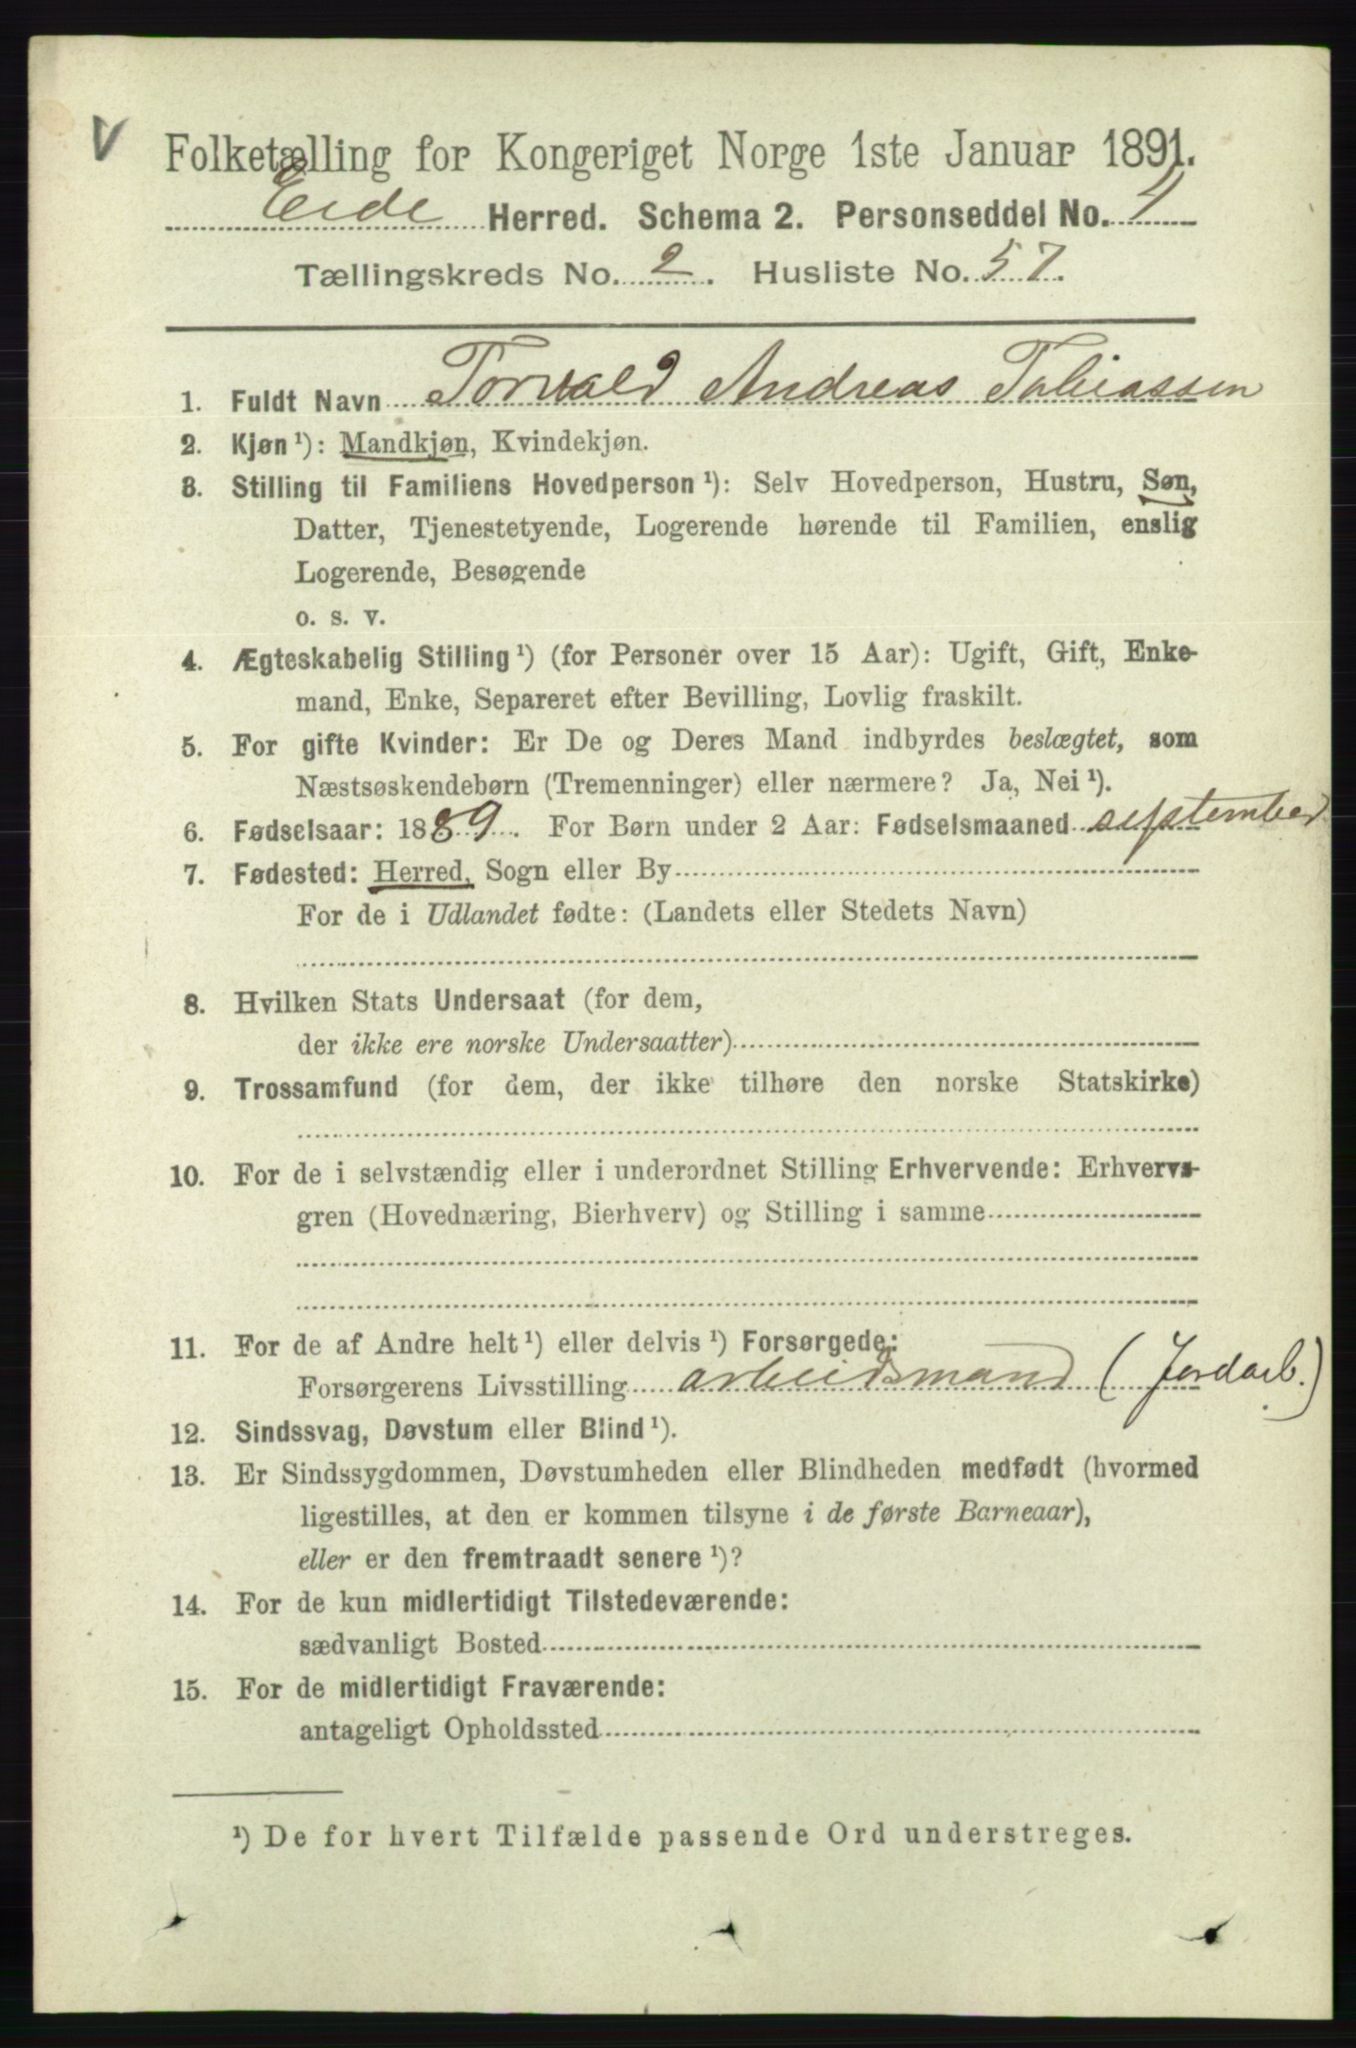 V
Folketælling for Kongeriget Norge 1ste Januar 1891.
Eide Herred. Schema 2. Personseddel No. 4
Tællingskreds No. 2. Husliste No. 57.
1. Fuldt Navn Torvald Andreas Tobiassen
2. Kjøn ¹): Mandkjøn, Kvindekjøn.
3. Stilling til Familiens Hovedperson ¹): Selv Hovedperson, Hustru, Søn,
Datter, Tjenestetyende, Logerende hørende til Familien, enslig
Logerende, Besøgende
o. s. v.
4. Ægteskabelig Stilling ¹) (for Personer over 15 Aar): Ugift, Gift, Enke-
mand, Enke, Separeret efter Bevilling, Lovlig fraskilt.
5. For gifte Kvinder: Er De og Deres Mand indbyrdes beslægtet, som
Næstsøskendebørn (Tremenninger) eller nærmere? Ja, Nei ¹).
6. Fødselsaar: 1889. For Børn under 2 Aar: Fødselsmaaned september
7. Fødested: Herred, Sogn eller By
For de i Udlandet fødte: (Landets eller Stedets Navn)
8. Hvilken Stats Undersaat (for dem,
der ikke ere norske Undersaatter)
9. Trossamfund (for dem, der ikke tilhøre den norske Statskirke)
10. For de i selvstændig eller i underordnet Stilling Erhvervende: Erhvervs-
gren (Hovednæring, Bierhverv) og Stilling i samme
11. For de af Andre helt ¹) eller delvis ¹) Forsørgede:
Forsørgerens Livsstilling arbeidsmand (Jordarb.)
12. Sindssvag, Døvstum eller Blind ¹).
13. Er Sindssygdommen, Døvstumheden eller Blindheden medfødt (hvormed
ligestilles, at den er kommen tilsyne i de første Barneaar),
eller er den fremtraadt senere ¹)?
14. For de kun midlertidigt Tilstedeværende:
sædvanligt Bosted
15. For de midlertidigt Fraværende:
antageligt Opholdssted
¹) De for hvert Tilfælde passende Ord understreges.